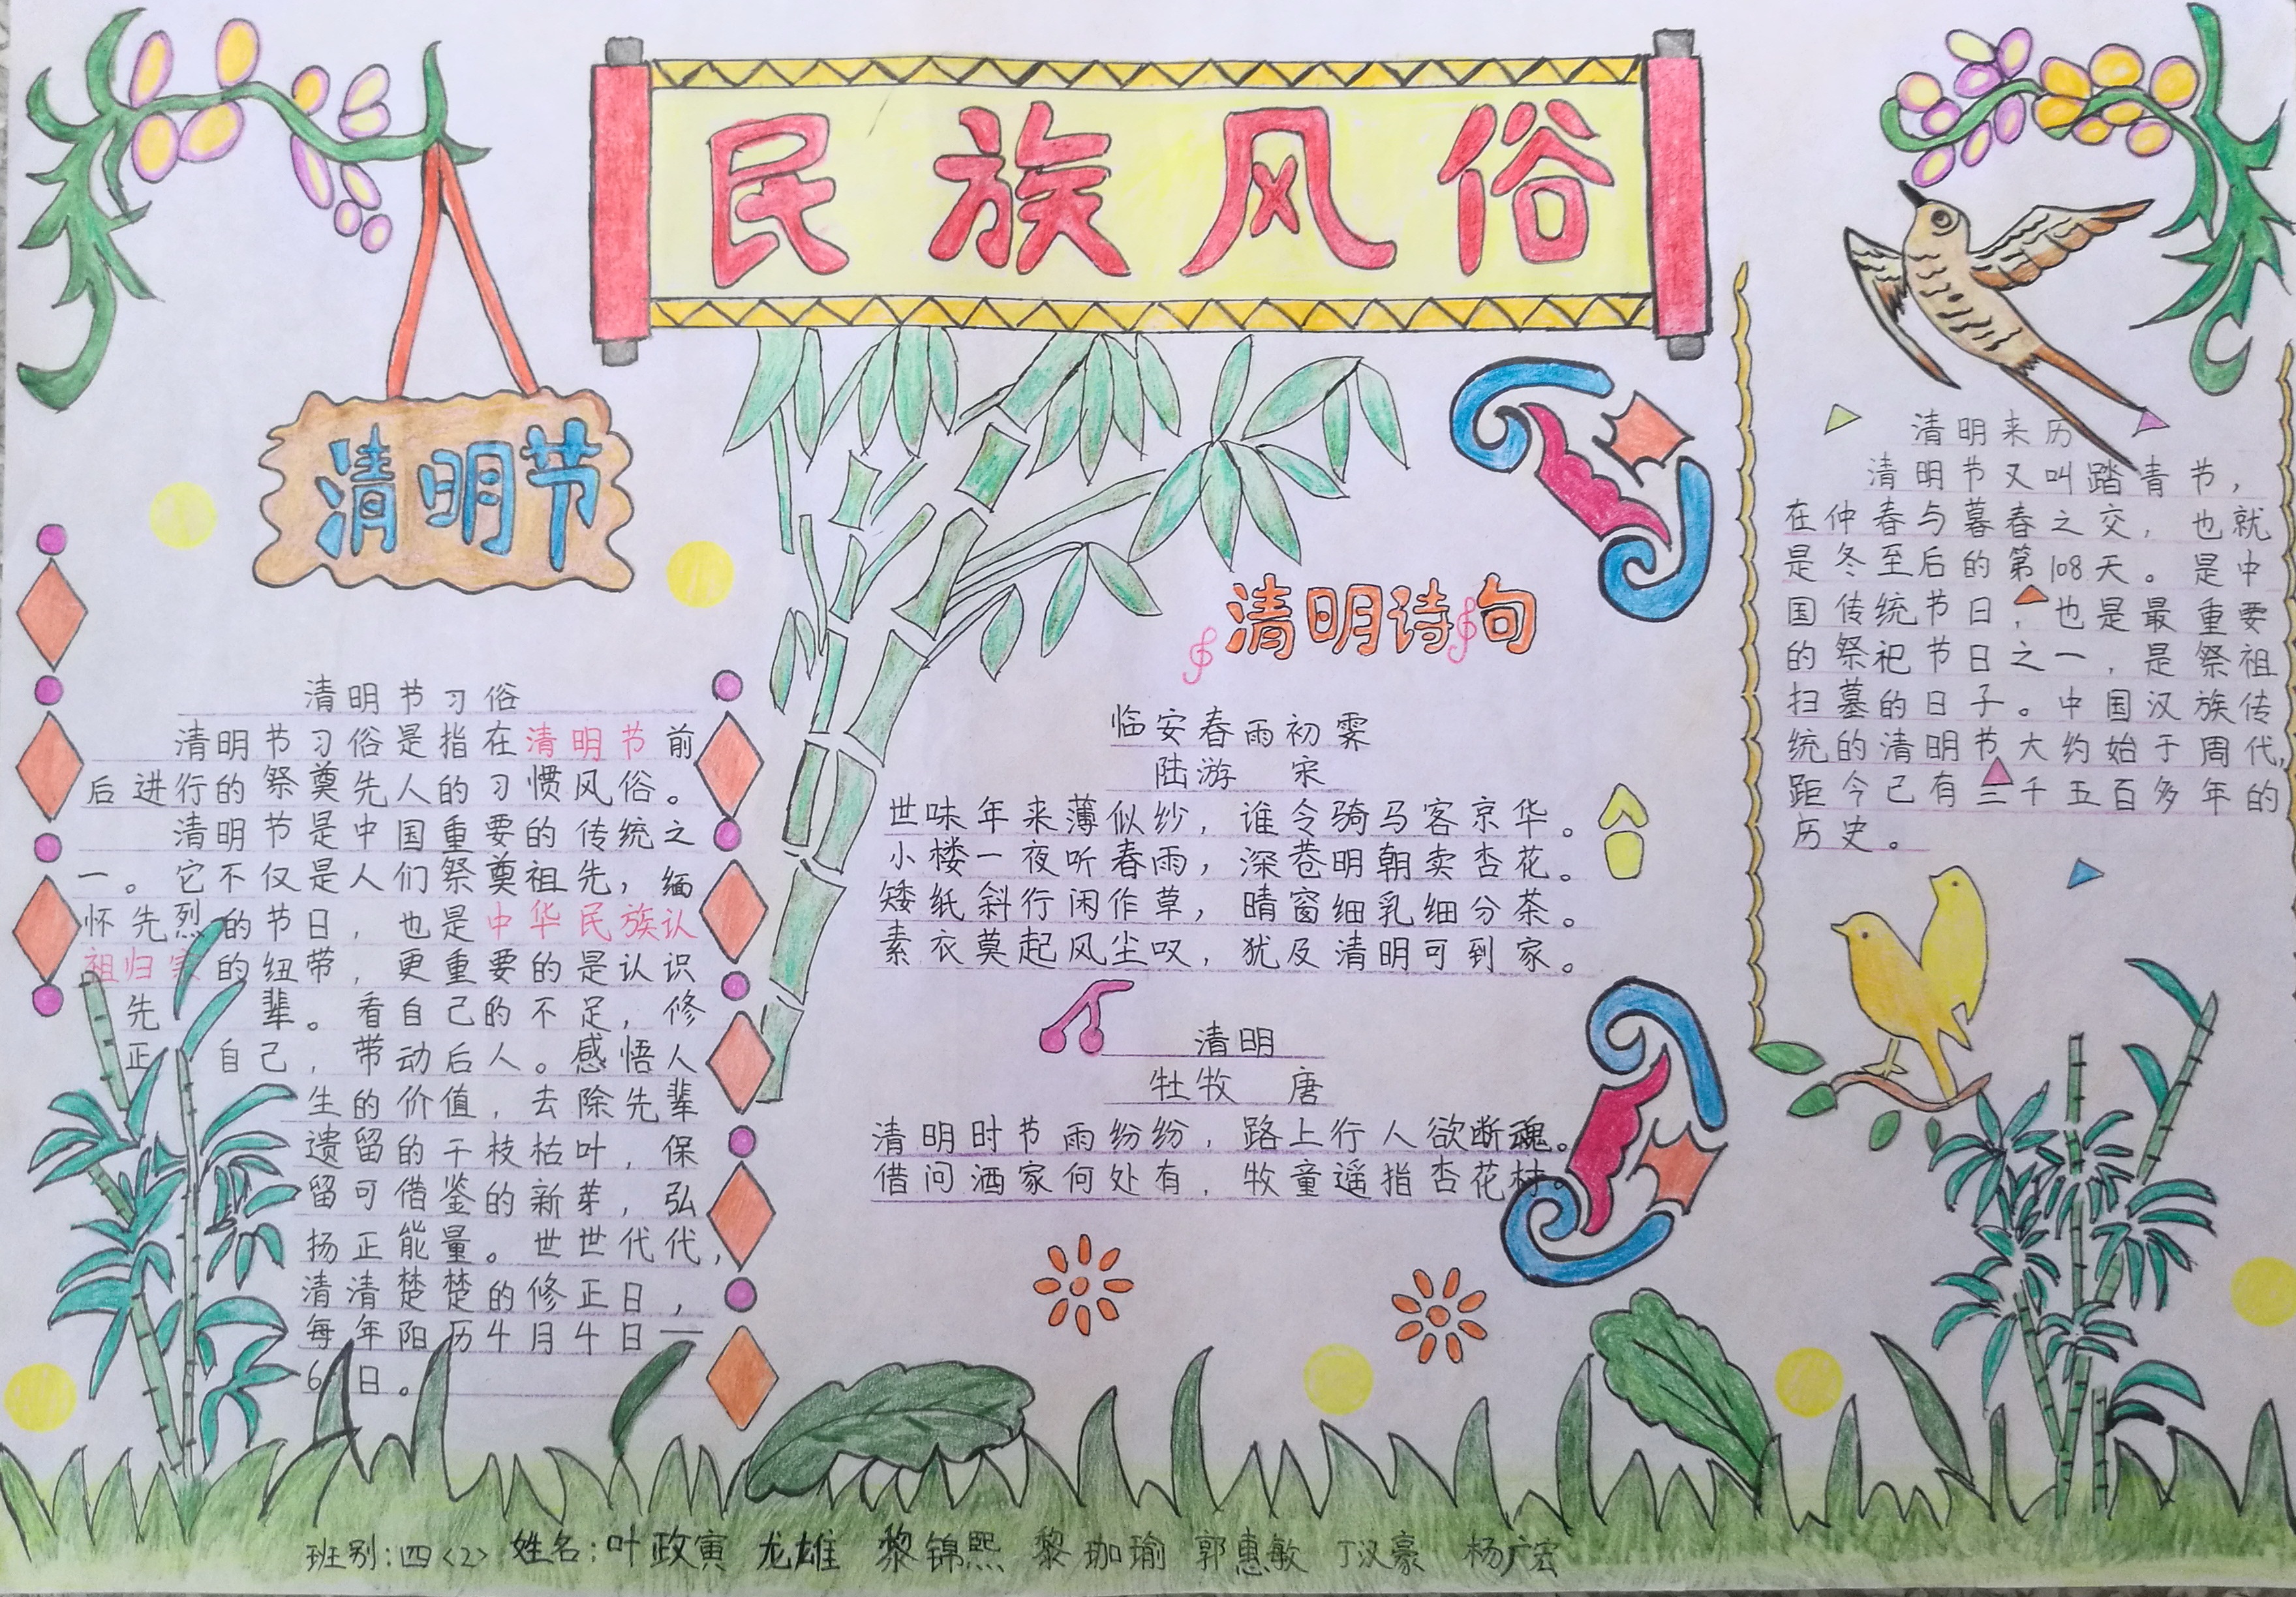 民族风俗
清明节
清明节习俗
清明节习俗是指在清明节前
后进行的祭奠先人的习惯风俗。
清明节是中国重要的传统之
一。它不仅是人们祭奠祖先，缅
怀先烈的节日，也是中华民族认
祖归宗的纽带，更重要的是认识
先辈。看自己的不足，修
正自己，带动后人。感悟人
生的价值，去除先辈
遗留的干枝枯叶，保
留可借鉴的新芽，弘
扬正能量。世世代代，
清清楚楚的修正日，
每年阳历4月4日—
6日。
清明诗句
临安春雨初霁
陆游 宋
世味年来薄似纱，谁令骑马客京华。
小楼一夜听春雨，深巷明朝卖杏花。
矮纸斜行闲作草，晴窗细乳细分茶。
素衣莫起风尘叹，犹及清明可到家。
清明
牡牧 唐
清明时节雨纷纷，路上行人欲断魂。
借问酒家何处有，牧童遥指杏花村。
清明来历
清明节又叫踏青节，
在仲春与暮春之交，也就
是冬至后的第108天。是中
国传统节日，也是最重要
的祭祀节日之一，是祭祖
扫墓的日子。中国汉族传
统的清明节大约始于周代，
距今已有二千五百多年的
历史。
班别：四<2> 姓名：叶政寅 龙雄 黎锦熙 黎珈瑜 郭惠敏 丁汉豪 杨广宏